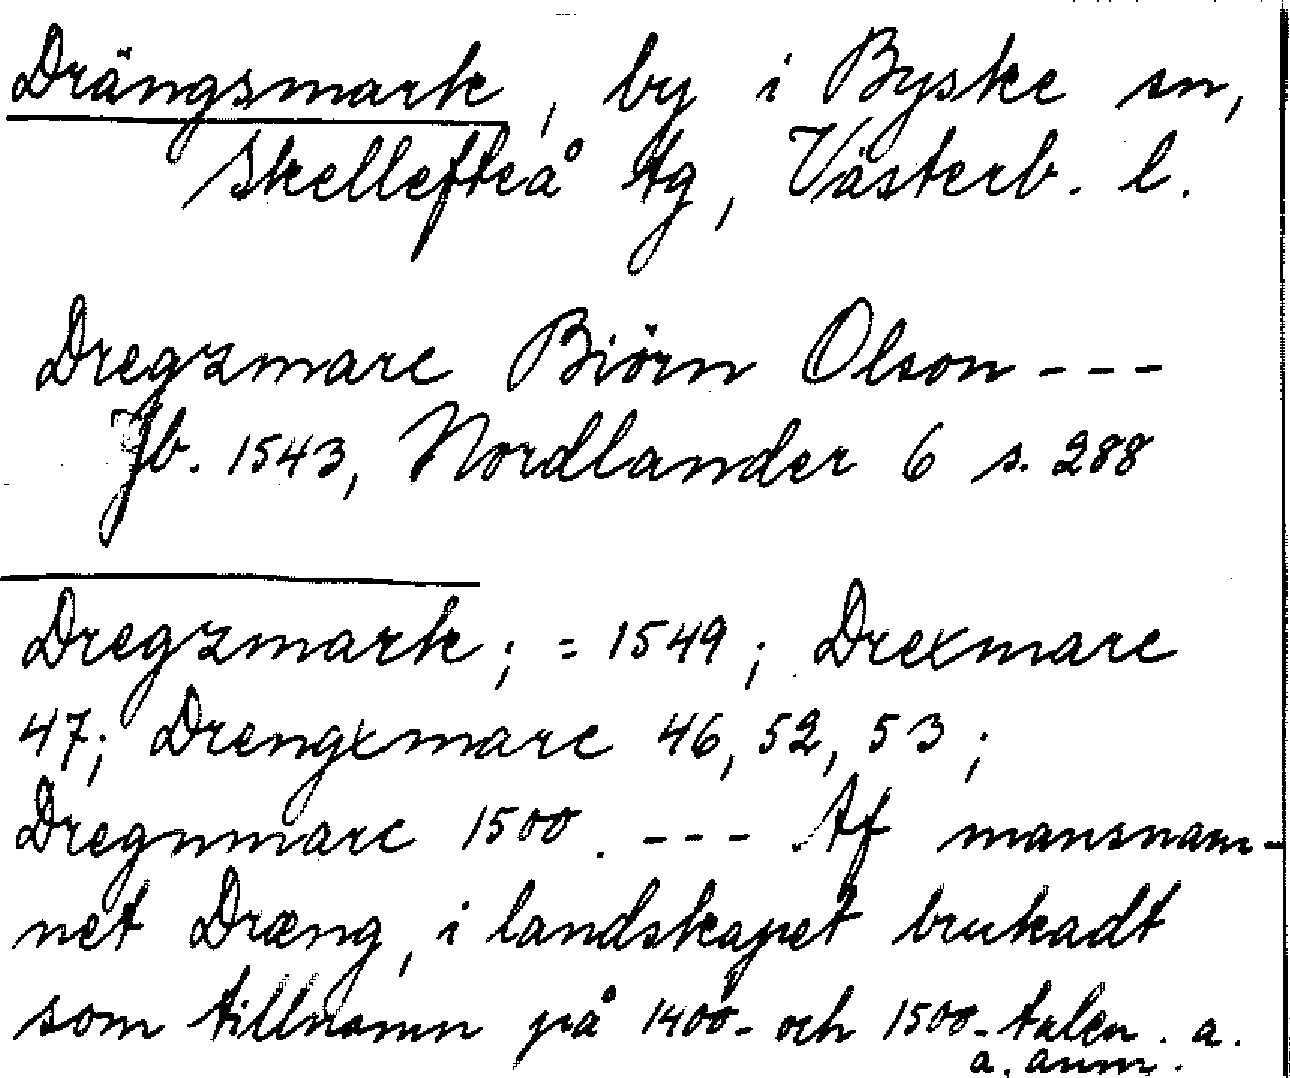 Drängsmark, by i Byske sn,
Skellefteå tg, Västerb. l.
Dregzmarc Biörn Olson ---
Jb. 1543, Nordlander 6 s. 288
Dregzmark; = 1549; Drexmarc
47; Drengxmarc 46, 52, 53;
Dregnmarc 1500. --- Af mansnam-
net Dræng, i landskapet brukadt
som tillnamn på 1400- och 1500-talen. a.
a. anm.